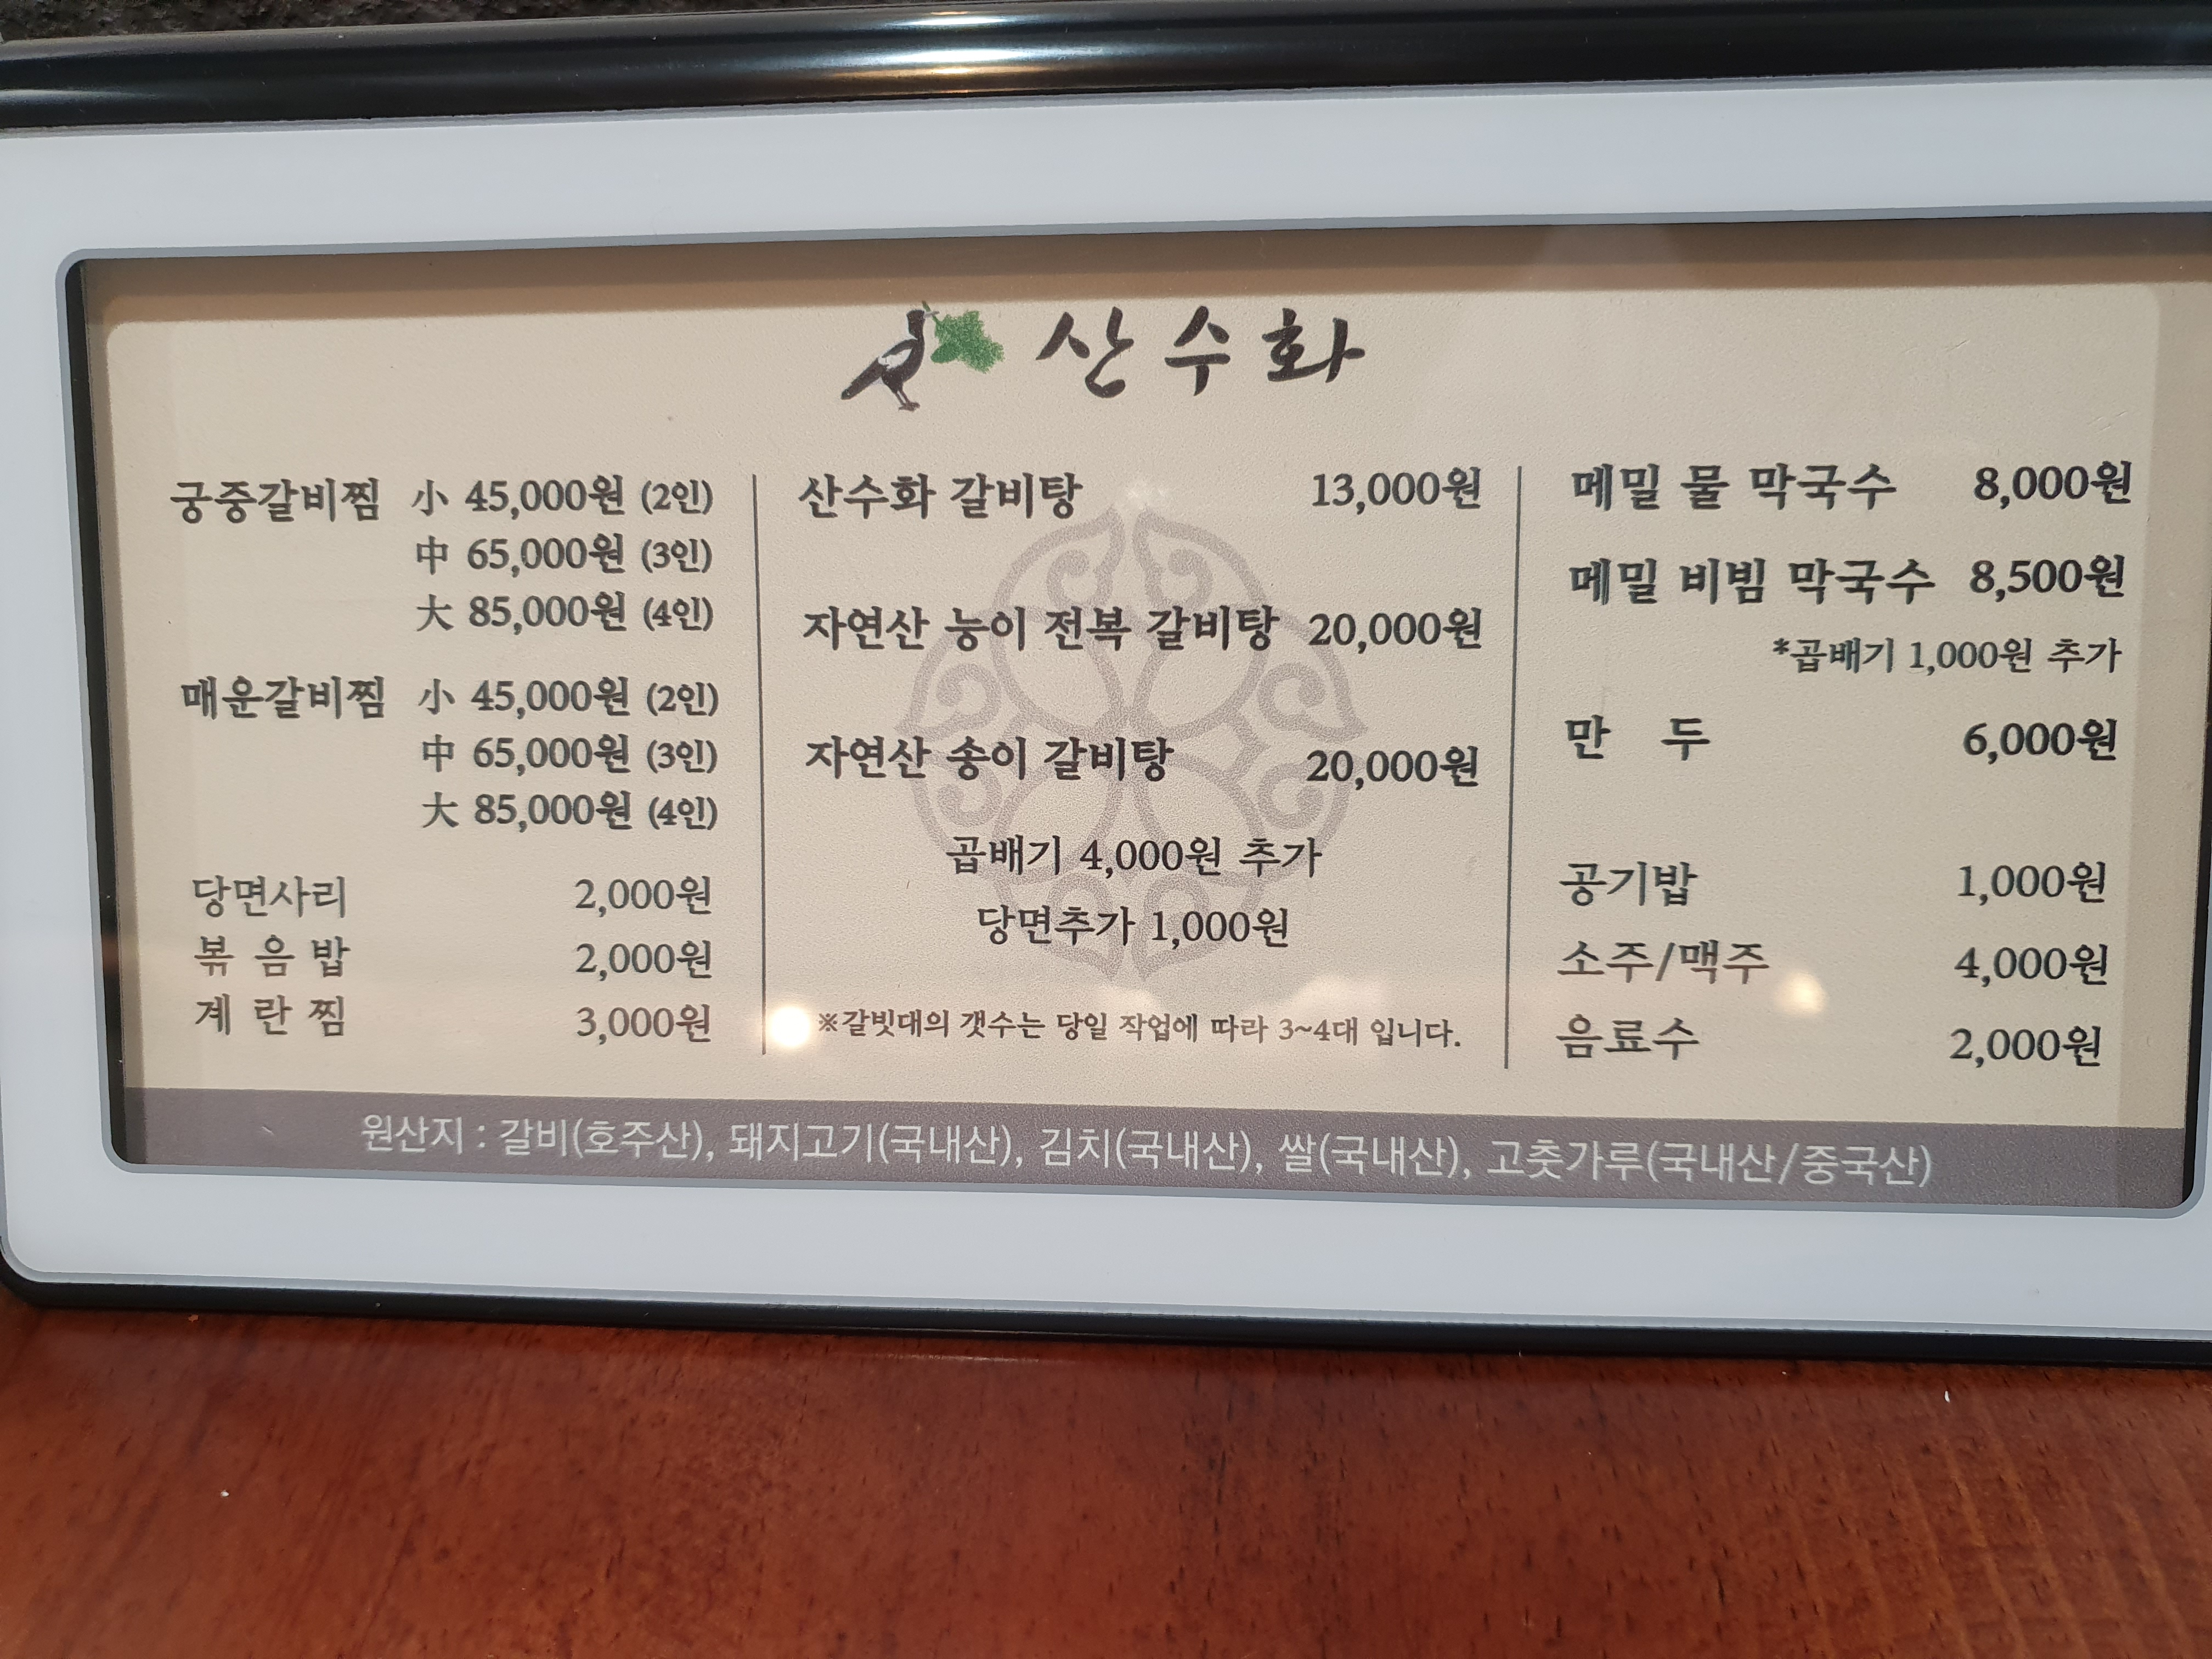 산수화
궁중갈비찜 小 45,000원 (2인)
中 65,000원 (3인)
大 85,000원 (4인)
매운갈비찜 小 45,000원 (2인)
中 65,000원 (3인)
大 85,000원 (4인)
당면사리 2,000원
볶음밥 2,000원
계란찜 3,000원
산수화 갈비탕 13,000원
자연산 능이 전복 갈비탕 20,000원
자연산 송이 갈비탕 20,000원
곱배기 4,000원 추가
당면추가 1,000원
※갈빗대의 갯수는 당일 작업에 따라 3~4대 입니다.
메밀 물 막국수 8,000원
메밀 비빔 막국수 8,500원
*곱배기 1,000원 추가
만 두 6,000원
공기밥 1,000원
소주/맥주 4,000원
음료수 2,000원
원산지 : 갈비(호주산), 돼지고기(국내산), 김치(국내산), 쌀(국내산), 고춧가루(국내산/중국산)